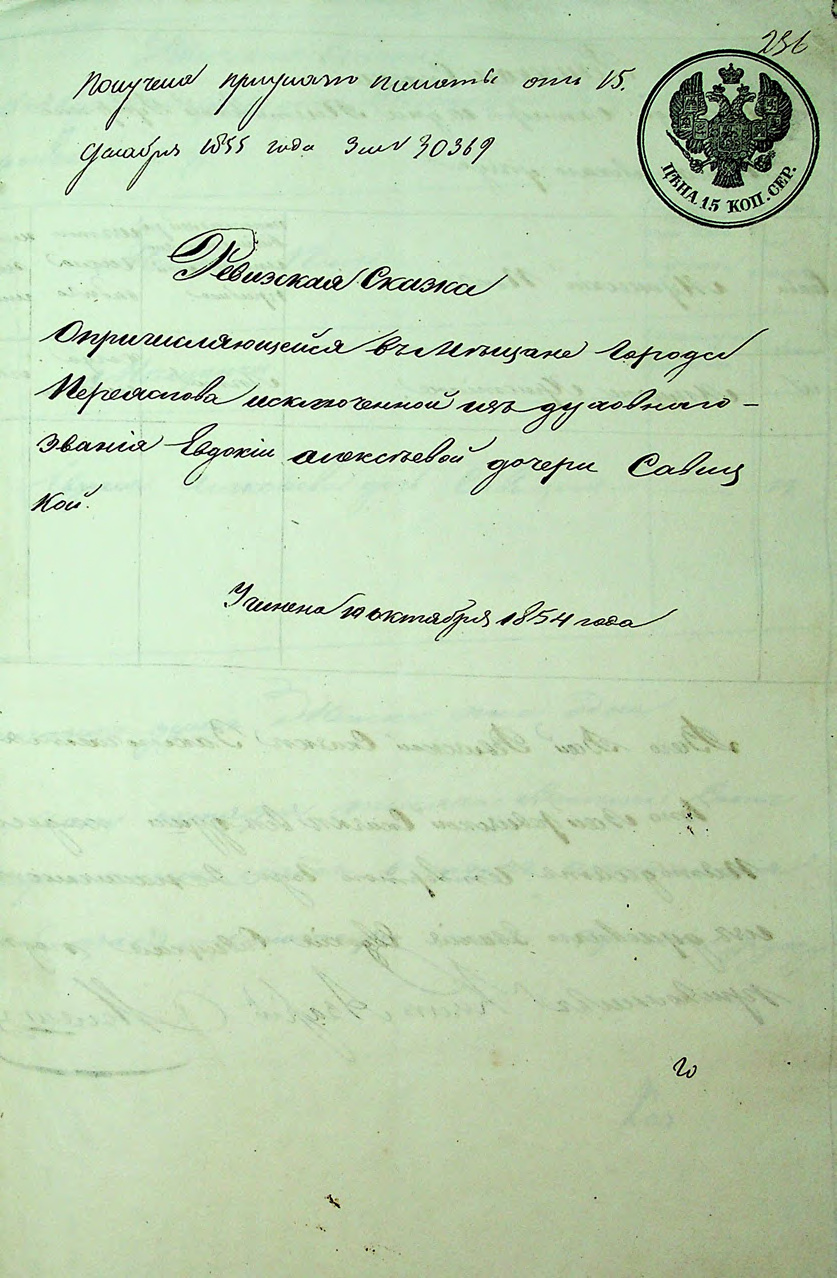 236
Получена при указе Палаты отъ 15.
Декабря 1855 года За № 30369
ЦѢНА 15 КОП. СЕР.
Ревизская Сказка
О причисляющейся въ Мѣщане Города
Переяслова исключенной изъ духовнаго –
Званія Евдокіи Алексѣевой дочери Савиц
кой.
Учинена октября 1854 года